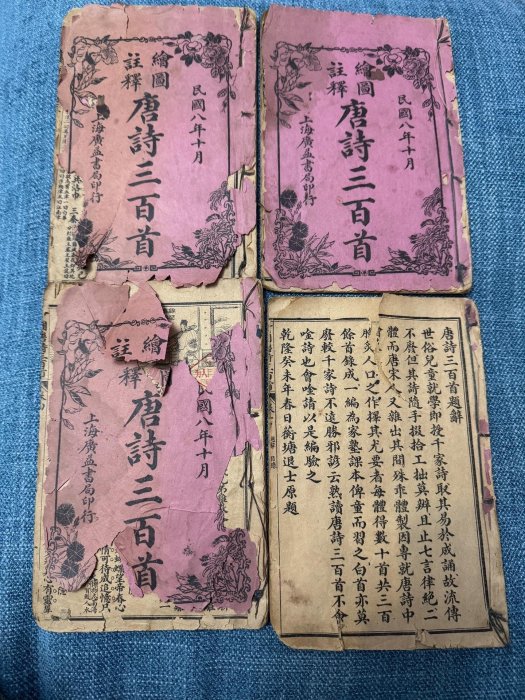 民國八年十月
繪圖
註釋
唐詩三百首
上海廣益書局印行
民國八年十月
繪圖
註釋
唐詩三百首
上海廣益書局印行
國八年十月
繪
註釋
唐詩三百首
上海廣益書局印行
望帝春心
唐詩三百首題辭
世俗兒童就學即授千家詩取其易於成誦故流傳
不廢但其詩隨手掇拾工拙莫辨且止七言律絕二
體而唐宋人又雜出其間殊乖體製因專就唐詩中
炙人口之作擇其尤要者每體得數十首共三百
餘首錄成一編為家塾課本俾童而習之白首亦莫
廢較千家詩不遠勝耶諺云熟讀唐詩三百首不會
唫詩也會唫請以是編驗之
乾隆癸未年春日蘅塘退士原題